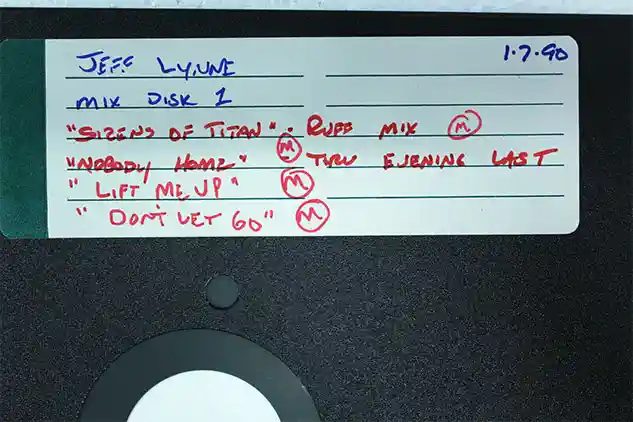 JEFF LYNNE 1·7·90
MIX DISK 1
"SIRENS OF TITAN" · RUFF MIX M
"NOBODY HOME" M THRU EVENING LAST
"LIFT ME UP" M
"DON'T LET GO" M